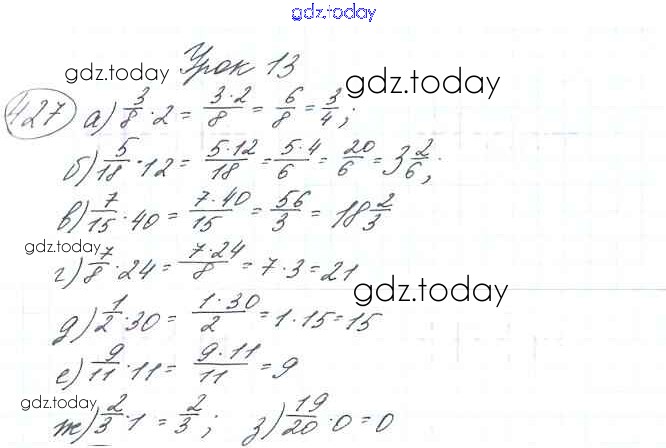 gdz.today
Урок 13
gdz.today
427 а) 3/8 · 2 = 3·2/8 = 6/8 = 3/4;
gdz.today
б) 5/18 · 12 = 5·12/18 = 5·4/6 = 20/6 = 3 2/6;
в) 7/15 · 40 = 7·40/15 = 56/3 = 18 2/3
gdz.today
г) 7/8 · 24 = 7·24/8 = 7·3 = 21
gdz.today
д) 1/2 · 30 = 1·30/2 = 1·15 = 15
е) 9/11 · 11 = 9·11/11 = 9
gdz.today
ж) 2/3 · 1 = 2/3; з) 19/20 · 0 = 0